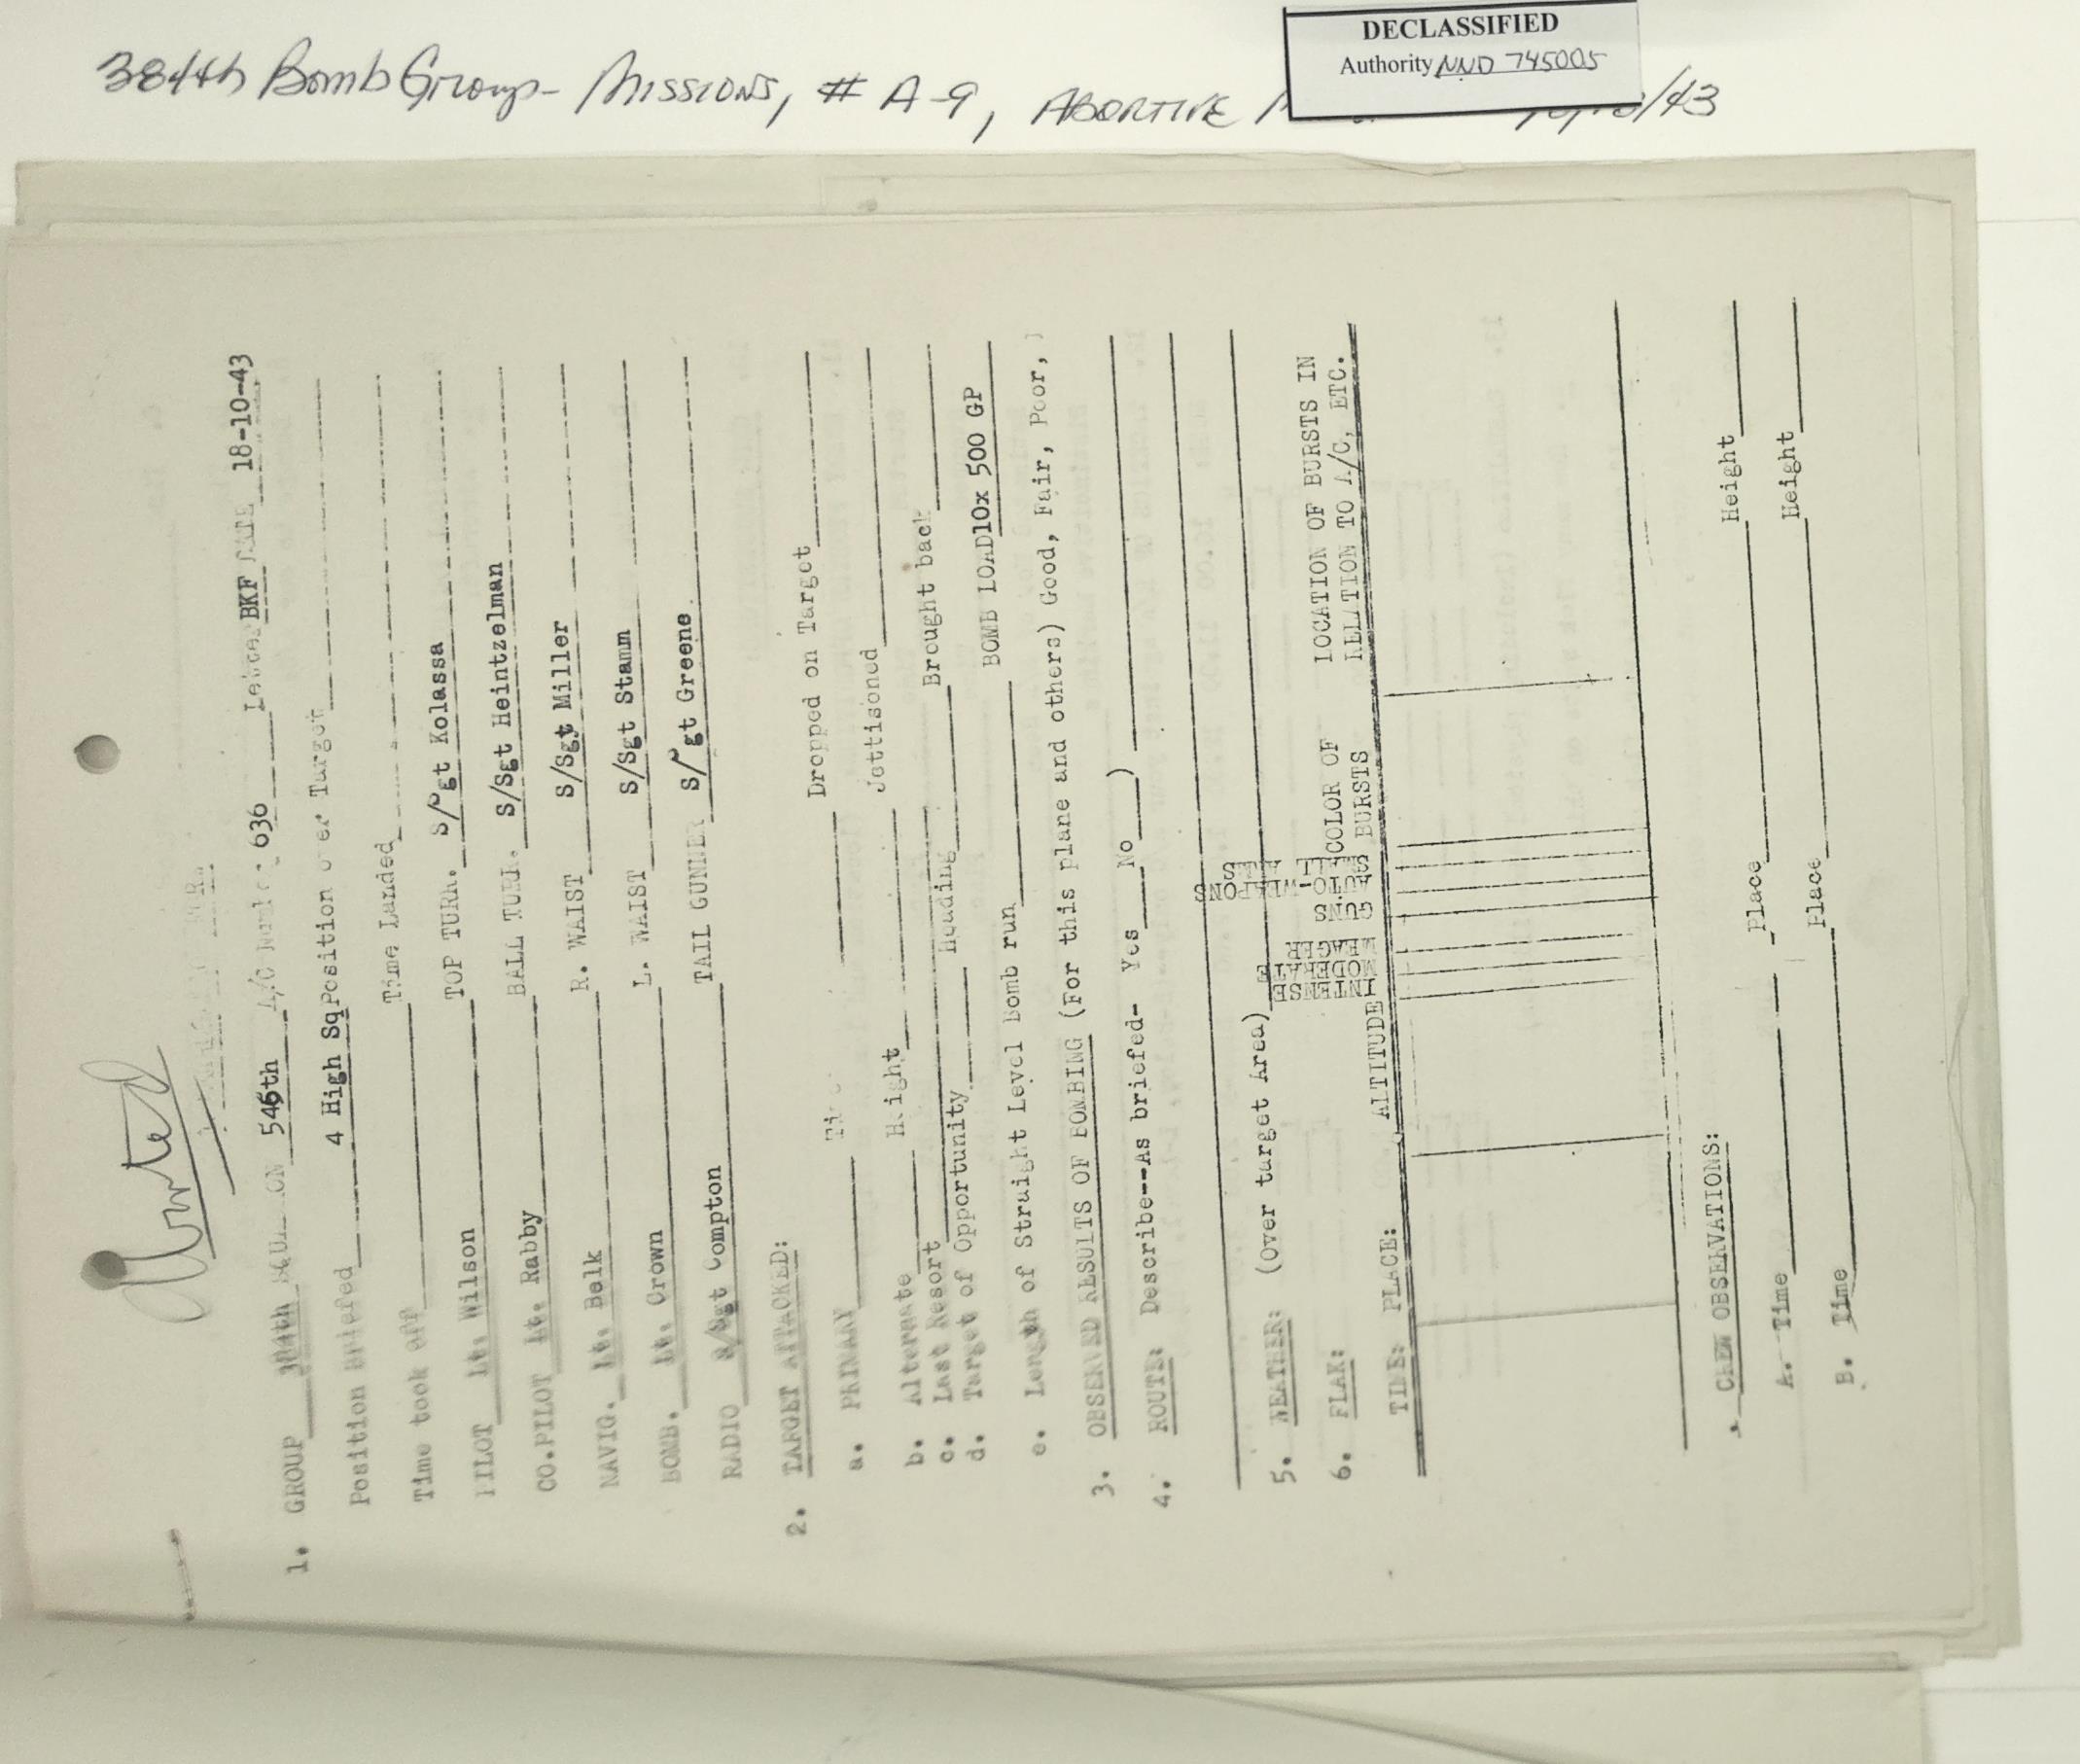 DECLASSIFIED
Authority NND 745005
384th Bomb Group - Missions, # A-9, Abortive /43
Aborted
1. GROUP 384th SQUADRON 546th A/C Number 636 Letter BKF DATE 18-10-43
Position Briefed 4 High Sq Position over Target
Time took off Time Landed
PILOT Lt. Wilson TOP TURR. S/Sgt Kolassa
CO.PILOT Lt. Rabby BALL TURR. S/Sgt Heintzelman
NAVIG. Lt. Belk R. WAIST S/Sgt Miller
BOMB. Lt. Crown L. WAIST S/Sgt Stamm
RADIO S/Sgt Compton TAIL GUNNER S/Sgt Greene
2. TARGET ATTACKED:
a. PRIMARY Time Dropped on Target
b. Alternate Height Jettisoned
c. Last Resort
d. Target of Opportunity Heading Brought back
e. Length of Straight Level Bomb run BOMB LOAD 10x 500 GP
3. OBSERVED RESULTS OF BOMBING (For this plane and others) Good, Fair, Poor,
4. ROUTE: Describe--As briefed- Yes No )
5. WEATHER: (Over target Area)
6. FLAK:
TIME: PLACE: ALTITUDE INTENSE MODERATE MEAGER GUNS AUTO-WEAPONS COLOR OF BURSTS LOCATION OF BURSTS IN RELATION TO A/C, ETC.
CREW OBSERVATIONS:
A. Time Place Height
B. Time Place Height